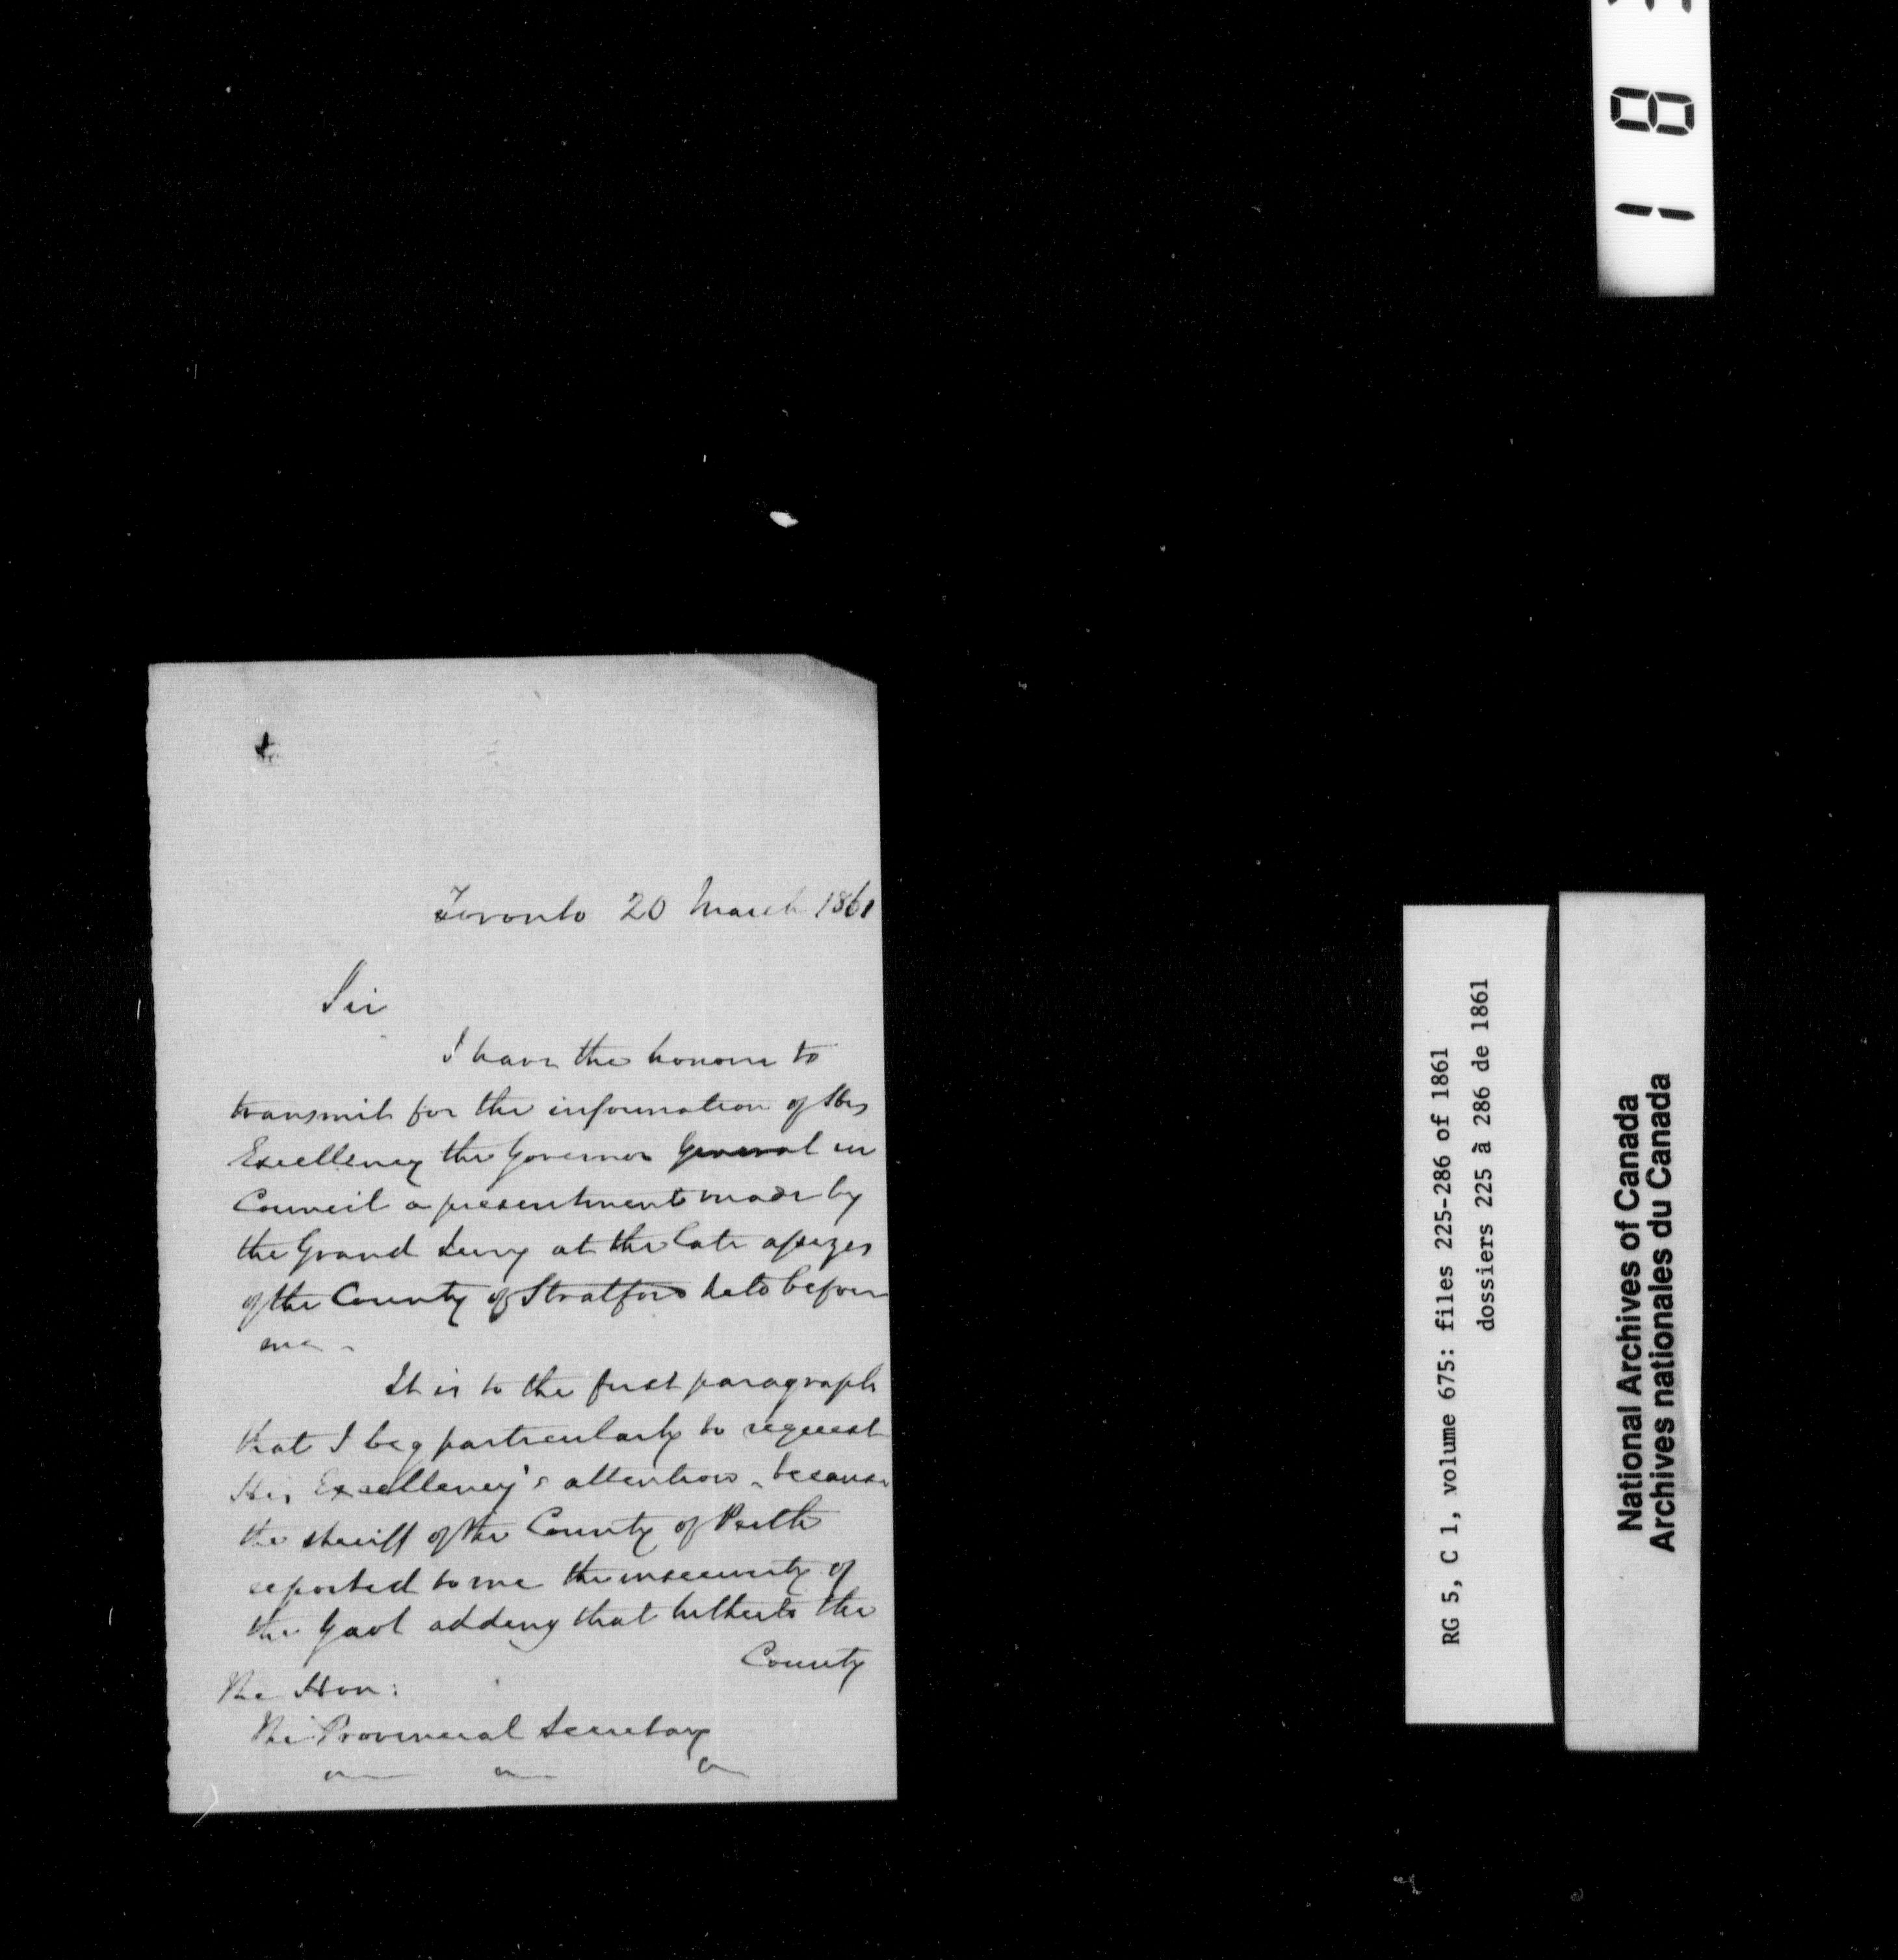 Toronto 20 March 1861
Sir
I have the honour to
transmit for the information of His
Excellency the Governor General in
Council a presentment made by
the Grand Jury at the late assizes
of the County of Stratford held before
me -
It is to the first paragraph
that I beg particularly to request
His Excellency's attention - because
the sheriff of the County of Perth
reported to me the insecurity of
the Gaol adding that hitherto the
County
The Hon:
The Provincial Secretary
RG 5, C 1, volume 675: files 225-286 of 1861
dossiers 225 à 286 de 1861
National Archives of Canada
Archives nationales du Canada
1 8